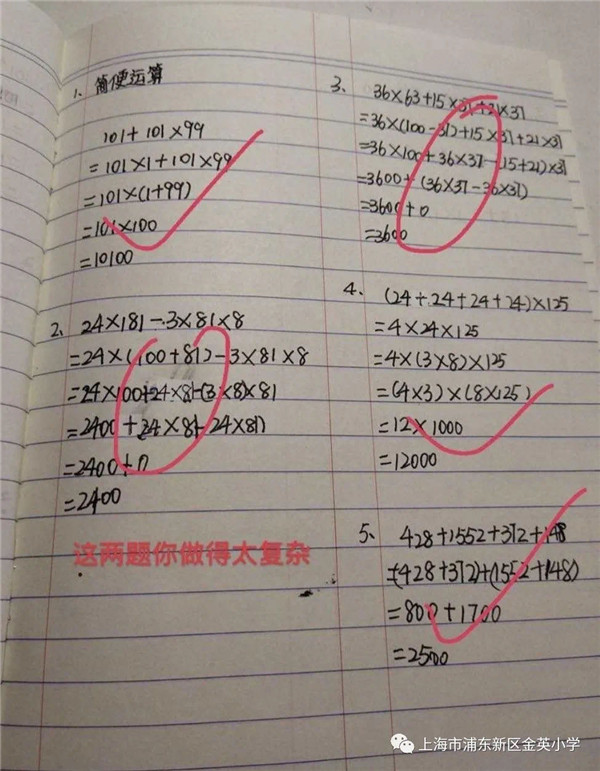 1、简便运算
101+101×99
=101×1+101×99
=101×(1+99)
=101×100
=10100
2、24×181-3×81×8
=24×(100+81)-3×81×8
=24×100+24×81-(3×8)×81
=2400+(24×81-24×81)
=2400+0
=2400
这两题你做得太复杂
3、36×63+15×37+21×37
=36×(100-37)+15×37+21×37
=36×100+36×37-(15+21)×37
=3600+(36×37-36×37)
=3600+0
=3600
4、(24+24+24+24)×125
=4×24×125
=4×(3×8)×125
=(4×3)×(8×125)
=12×1000
=12000
5、428+1552+372+148
=(428+372)+(1552+148)
=800+1700
=2500
上海市浦东新区金英小学